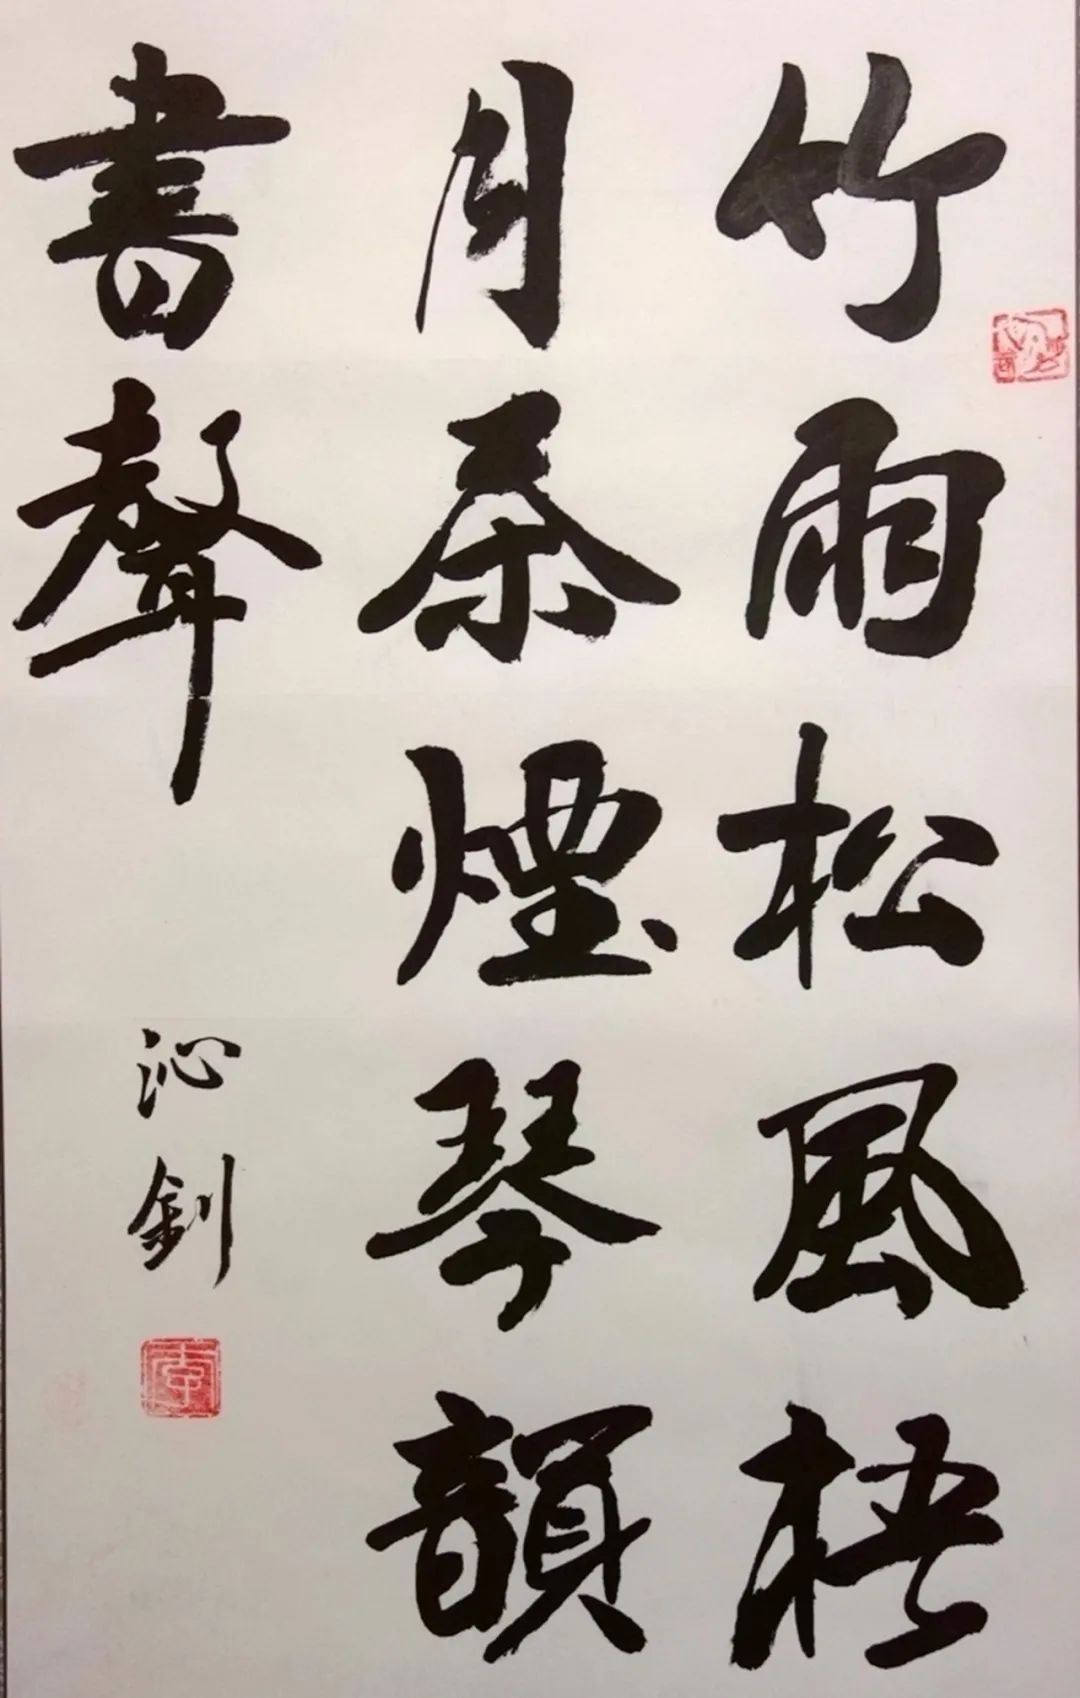 竹雨松風梧
月茶煙琴韻
書聲
沁釗